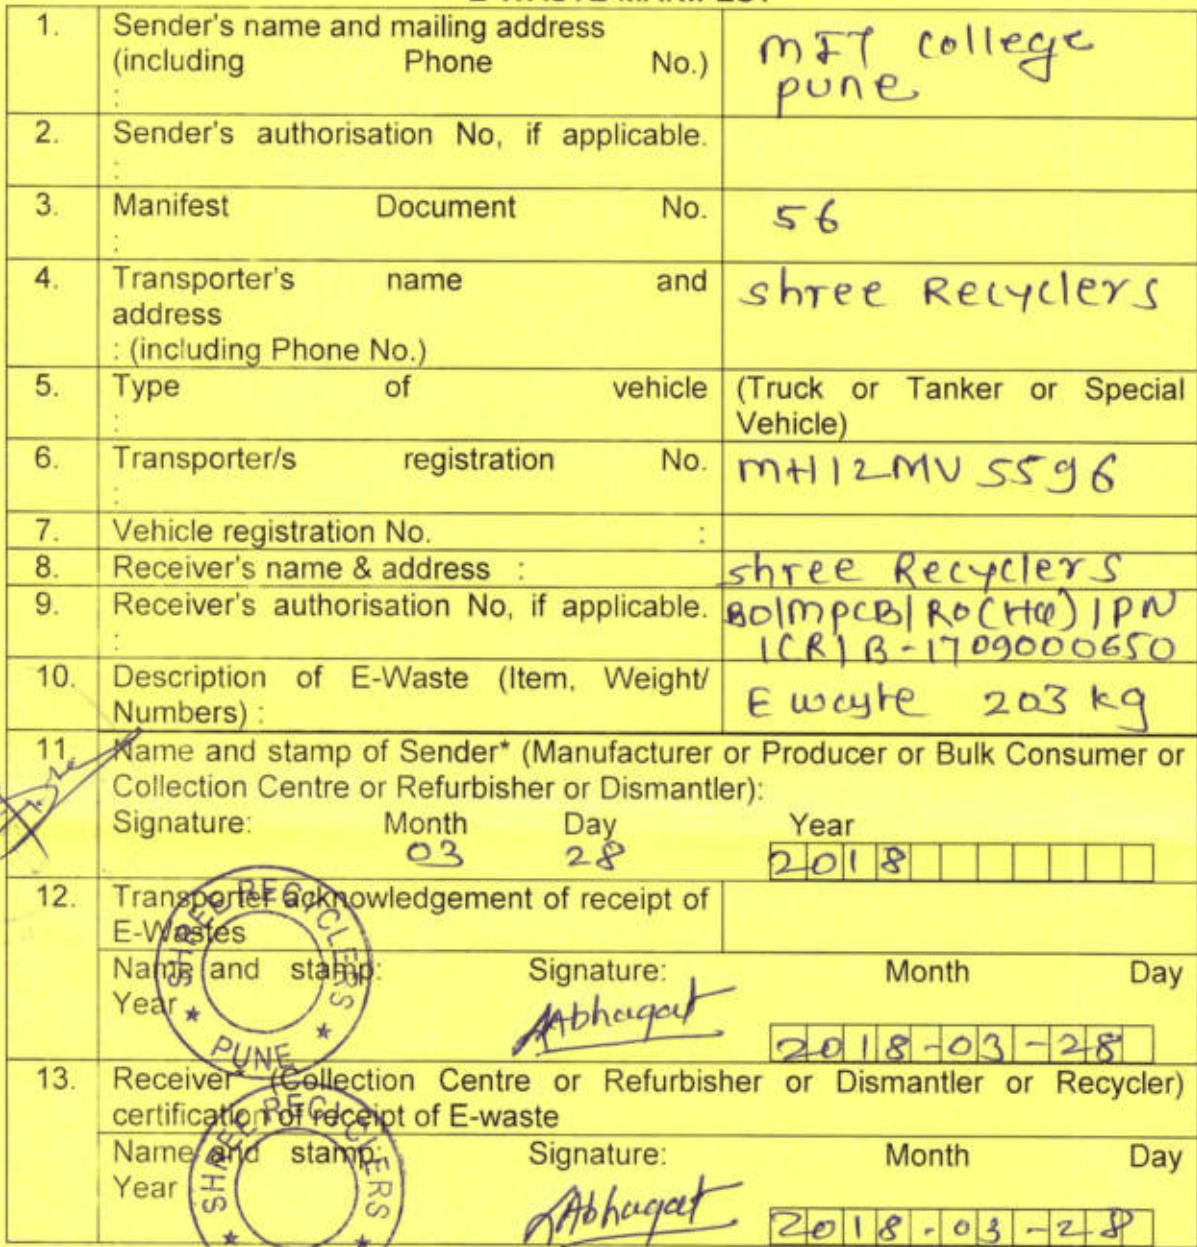 1. Sender's name and mailing address
(including Phone No.)
:
MIT college
pune
2. Sender's authorisation No, if applicable.
:
3. Manifest Document No.
:
56
4. Transporter's name and
address
: (including Phone No.)
shree Recyclers
5. Type of vehicle
:
(Truck or Tanker or Special
Vehicle)
6. Transporter/s registration No.
:
MH12MV 5596
7. Vehicle registration No. :
8. Receiver's name & address :
shree Recyclers
9. Receiver's authorisation No, if applicable.
:
BO|MPCB|RO(HQ)|PN
|CR|B-1709000650
10. Description of E-Waste (Item, Weight/
Numbers) :
E waste 203 kg
11. Name and stamp of Sender* (Manufacturer or Producer or Bulk Consumer or
Collection Centre or Refurbisher or Dismantler):
Signature: Month Day Year
03 28 2018
12. Transporter acknowledgement of receipt of
E-Wastes
Name and stamp: Signature: Month Day
Year
SHREE RECYCLERS
PUNE
Abhagat
2018-03-28
13. Receiver* (Collection Centre or Refurbisher or Dismantler or Recycler)
certification of receipt of E-waste
Name and stamp: Signature: Month Day
Year
SHREE RECYCLERS
Abhagat
2018-03-28